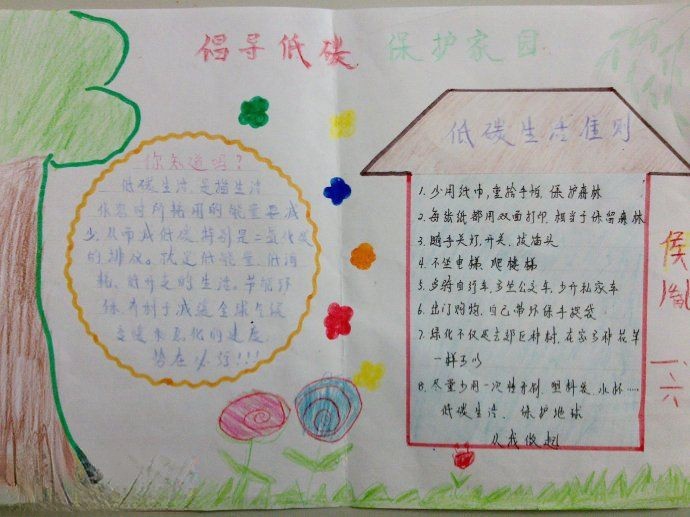 倡导低碳 保护家园
你知道吗?
低碳生活,是指生活
作息时所耗用的能量要减
少,从而减低碳,特别是二氧化碳
的排放。就是低能量、低消
耗、低开支的生活。节能环
保,有利于减缓全球气候
变暖和恶化的速度
势在必行!!!
低碳生活准则
1. 少用纸巾,重拾手帕,保护森林
2. 每张纸都用双面打印,相当于保留森林
3. 随手关灯、开关、拔插头
4. 不坐电梯、爬楼梯
5. 多骑自行车、多坐公交车、少开私家车
6. 出门购物,自己带环保手提袋
7. 绿化不仅是去郊区种树,在家多种花草
一样可以
8. 尽量少用一次性牙刷、塑料袋、水杯……
低碳生活、保护地球
从我做起
侯
一、六